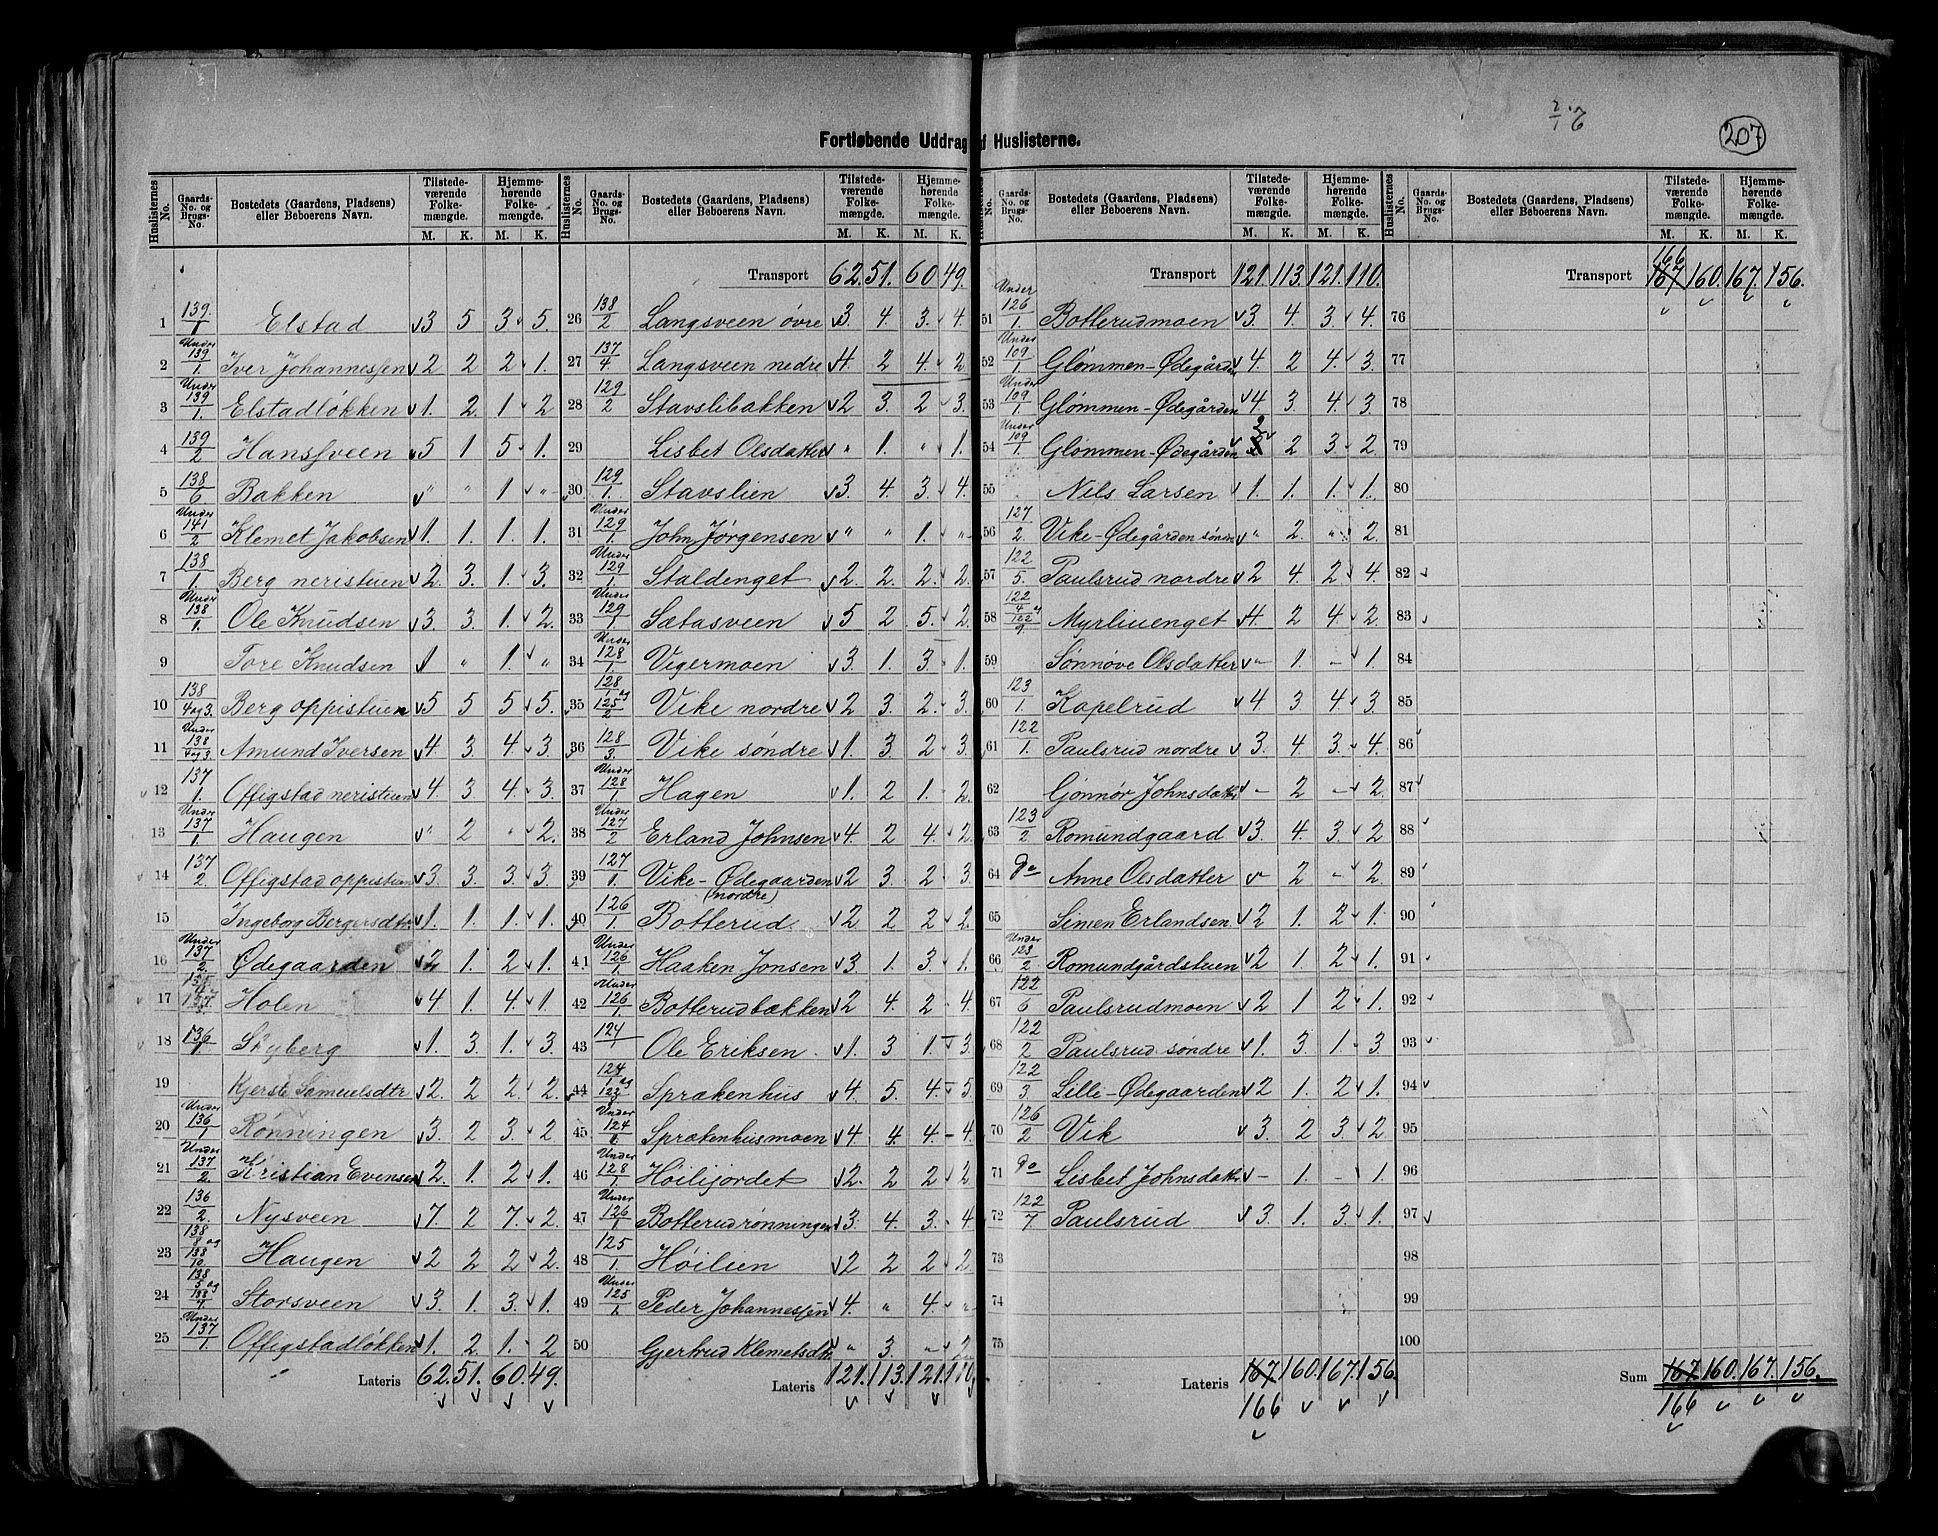 207
Fortløbende Uddrag af Huslisterne.
Huslisternes No. | Gaards-No. og Brugs-No. | Bostedets (Gaardens, Pladsens) eller Beboerens Navn. | Tilstedeværende Folkemængde. M. K. | Hjemmehørende Folkemængde. M. K.
1 139/1 Elstad 3 5 3 5.
2 Under 139/1. Iver Johannessen 2 2 2 1.
3 Under 139/1. Elstadløkken 1. 2 1 2
4 139/2 Hanssveen 5 1 5 1.
5 138/6 Bakken " " 1 "
6 Under 141/2 Klemet Jakobsen 1. 1. 1. 1.
7 138/1. Berg neristuen 2. 3. 1. 3.
8 Under 138/1. Ole Knudsen 3. 3. 1. 2.
9 Tore Knudsen 1 " 1. "
10 138/4 og 3. Berg oppistuen 5 5 5 5.
11 Under 138/4 og 3. Amund Iversen 4. 3. 4 3.
12 137/1. Offigstad neristuen 4. 3 4. 3.
13 Under 137/1. Haugen " 2 " 2.
14 137/2. Offigstad oppistuen 3. 3. 3. 3.
15 Ingeborg Bergersdtr. 1. 1. 1. 1.
16 Under 137/2. Ødegaarden 2. 1. 2 1.
17 Holen 4. 1. 4. 1.
18 136/1 Skyberg 1. 3. 1. 3.
19 Kjersti Samuelsdtr 2. 2 2. 2.
20 Under 136/1 Rønningen 3. 2 3. 2
21 Under 137/2. Kristian Evensen 2. 1. 2 1.
22 136/2. Nysveen 7. 2 7. 2.
23 138/8 og 138/10. Haugen 2 2 2 2
24 138/5 og 138/7 Storsveen 3. 1. 3. 1.
25 Under 137/1. Offigstadløkken 1. 2 1. 2
Lateris 62. 51. 60. 49.
Huslisternes No. | Gaards-No. og Brugs-No. | Bostedets (Gaardens, Pladsens) eller Beboerens Navn. | Tilstedeværende Folkemængde. M. K. | Hjemmehørende Folkemængde. M. K.
Transport 62. 51. 60 49.
26 138/2 Langsveen øvre 3. 4. 3. 4.
27 137/4 Langsveen nedre 4. 2 4. 2
28 129/2 Stavslibakken 2 3. 2 3.
29 Lisbet Olsdatter " 1. " 1.
30 129/1. Stavslien 3. 4. 3. 4.
31 Under 129/1. John Jørgensen " " 1. "
32 Under 129/1. Staldenget 2. 2. 2. 2.
33 Under 129/1. Sætasveen 5 2 5. 2.
34 Under 128/1. Vigermoen 3. 1. 3 1.
35 128/1 og 125/2 Vike nordre 2 3. 2. 3.
36 128/3. Vike søndre 1. 3 2 3.
37 Under 128/1 Hagen 1. 2 1. 2.
38 Under 127/2 Erland Johnsen 4. 2 4. 2
39 127/1. Vike-Ødegaarden (nordre) 2 3. 2 3.
40 126/1 Botterud. 2 2 2 2
41 Under 126/1. Haaken Jonsen 3. 1. 3. 1.
42 Under 126/1. Botterudbækken 2 4. 2 4.
43 124/1 Ole Eriksen. 1. 3 1. 3.
44 124/1 og 123/3 Sprækenhus 4. 5 4. 5.
45 Under 124/1. Sprækenhusmoen 4. 4 4. 4.
46 Under 128/1. Høilijordet 2. 2 2 2
47 Under 126/1. Botterudrønningen 3. 4. 3. 4.
48 125/1. Høilien 2 2 2 2.
49 Under 125/1. Peder Johannessen 4. " 4. "
50 Gjertrud Klemetsdtr " 3. " 2
Lateris 121. 113. 121. 110.
Huslisternes No. | Gaards-No. og Brugs-No. | Bostedets (Gaardens, Pladsens) eller Beboerens Navn. | Tilstedeværende Folkemængde. M. K. | Hjemmehørende Folkemængde. M. K.
Transport 121. 113. 121. 110.
51 Under 126/1. Botterudmoen 3. 4. 3. 4.
52 Under 109/1. Glømmen-Ødegården 4. 2 4. 3.
53 Under 109/1. Glømmen-Ødegården 4 3. 4. 3.
54 Under 109/1. Glømmen-Ødegården 2 2 3. 2.
55 Nils Larsen 1. 1. 1. 1.
56 127/2. Vike-Ødegården søndre " 2. " 2.
57 122/5. Paulsrud nordre 2 4. 2 4.
58 122/4 og 122/9. Myrliuenget 4. 2 4. 2.
59 Sønnøve Olsdatter - 1. - 1.
60 123/1. Kapelrud 4 3 4 3.
61 122/1. Paulsrud nordre 3. 4. 3. 4.
62 Gønnør Johnsdatter - 2 - 2.
63 123/2 Romundgaard 3. 4. 3. 2
64 do Anne Olsdatter - 2 - 2
65 Simen Erlandsen 2 1. 2 1.
66 Under 123/2 Romundgårdstuen 2 1. 2 1.
67 122/6 Paulsrudmoen 2 1 2 1.
68 122/2 Paulsrud søndre 1. 3. 1. 3.
69 122/3 Lille-Ødegaarden 2 1. 2 1.
70 126/2 Vik 3. 2 3. 2.
71 do Lisbet Johnsdatter - 1. - 1.
72 122/7 Paulsrud 3. 1. 3. 1.
73
74
75
Lateris 167. 160. 167. 156.
166
Huslisternes No. | Gaards-No. og Brugs-No. | Bostedets (Gaardens, Pladsens) eller Beboerens Navn. | Tilstedeværende Folkemængde. M. K. | Hjemmehørende Folkemængde. M. K.
166
Transport 167 160. 167. 156.
76
77
78
79
80
81
82
83
84
85
86
87
88
89
90
91
92
93
94
95
96
97
98
99
100
Sum 167. 160. 167. 156.
166